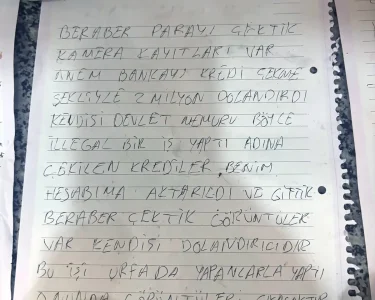 BERABER PARAYI ÇEKTİK
KAMERA KAYITLARI VAR
ANEM BANKAYI KREDİ ÇEKME
ŞEKLİYLE 2 MİLYON DOLANDIRDI
KENDİSİ DEVLET MEMURU BÖYLE
İLLEGAL BİR İŞ YAPTI ADINA
ÇEKİLEN KREDİLER BENİM
HESABIMA AKTARILDI VE GİTTİK
BERABER ÇEKTİK GÖRÜNTÜLER
VAR KENDİSİ DOLANDIRICIDIR
BU İŞİ URFADA YAPANLARLA YAPTI
ONUNDA GÖRÜNTÜLERİ